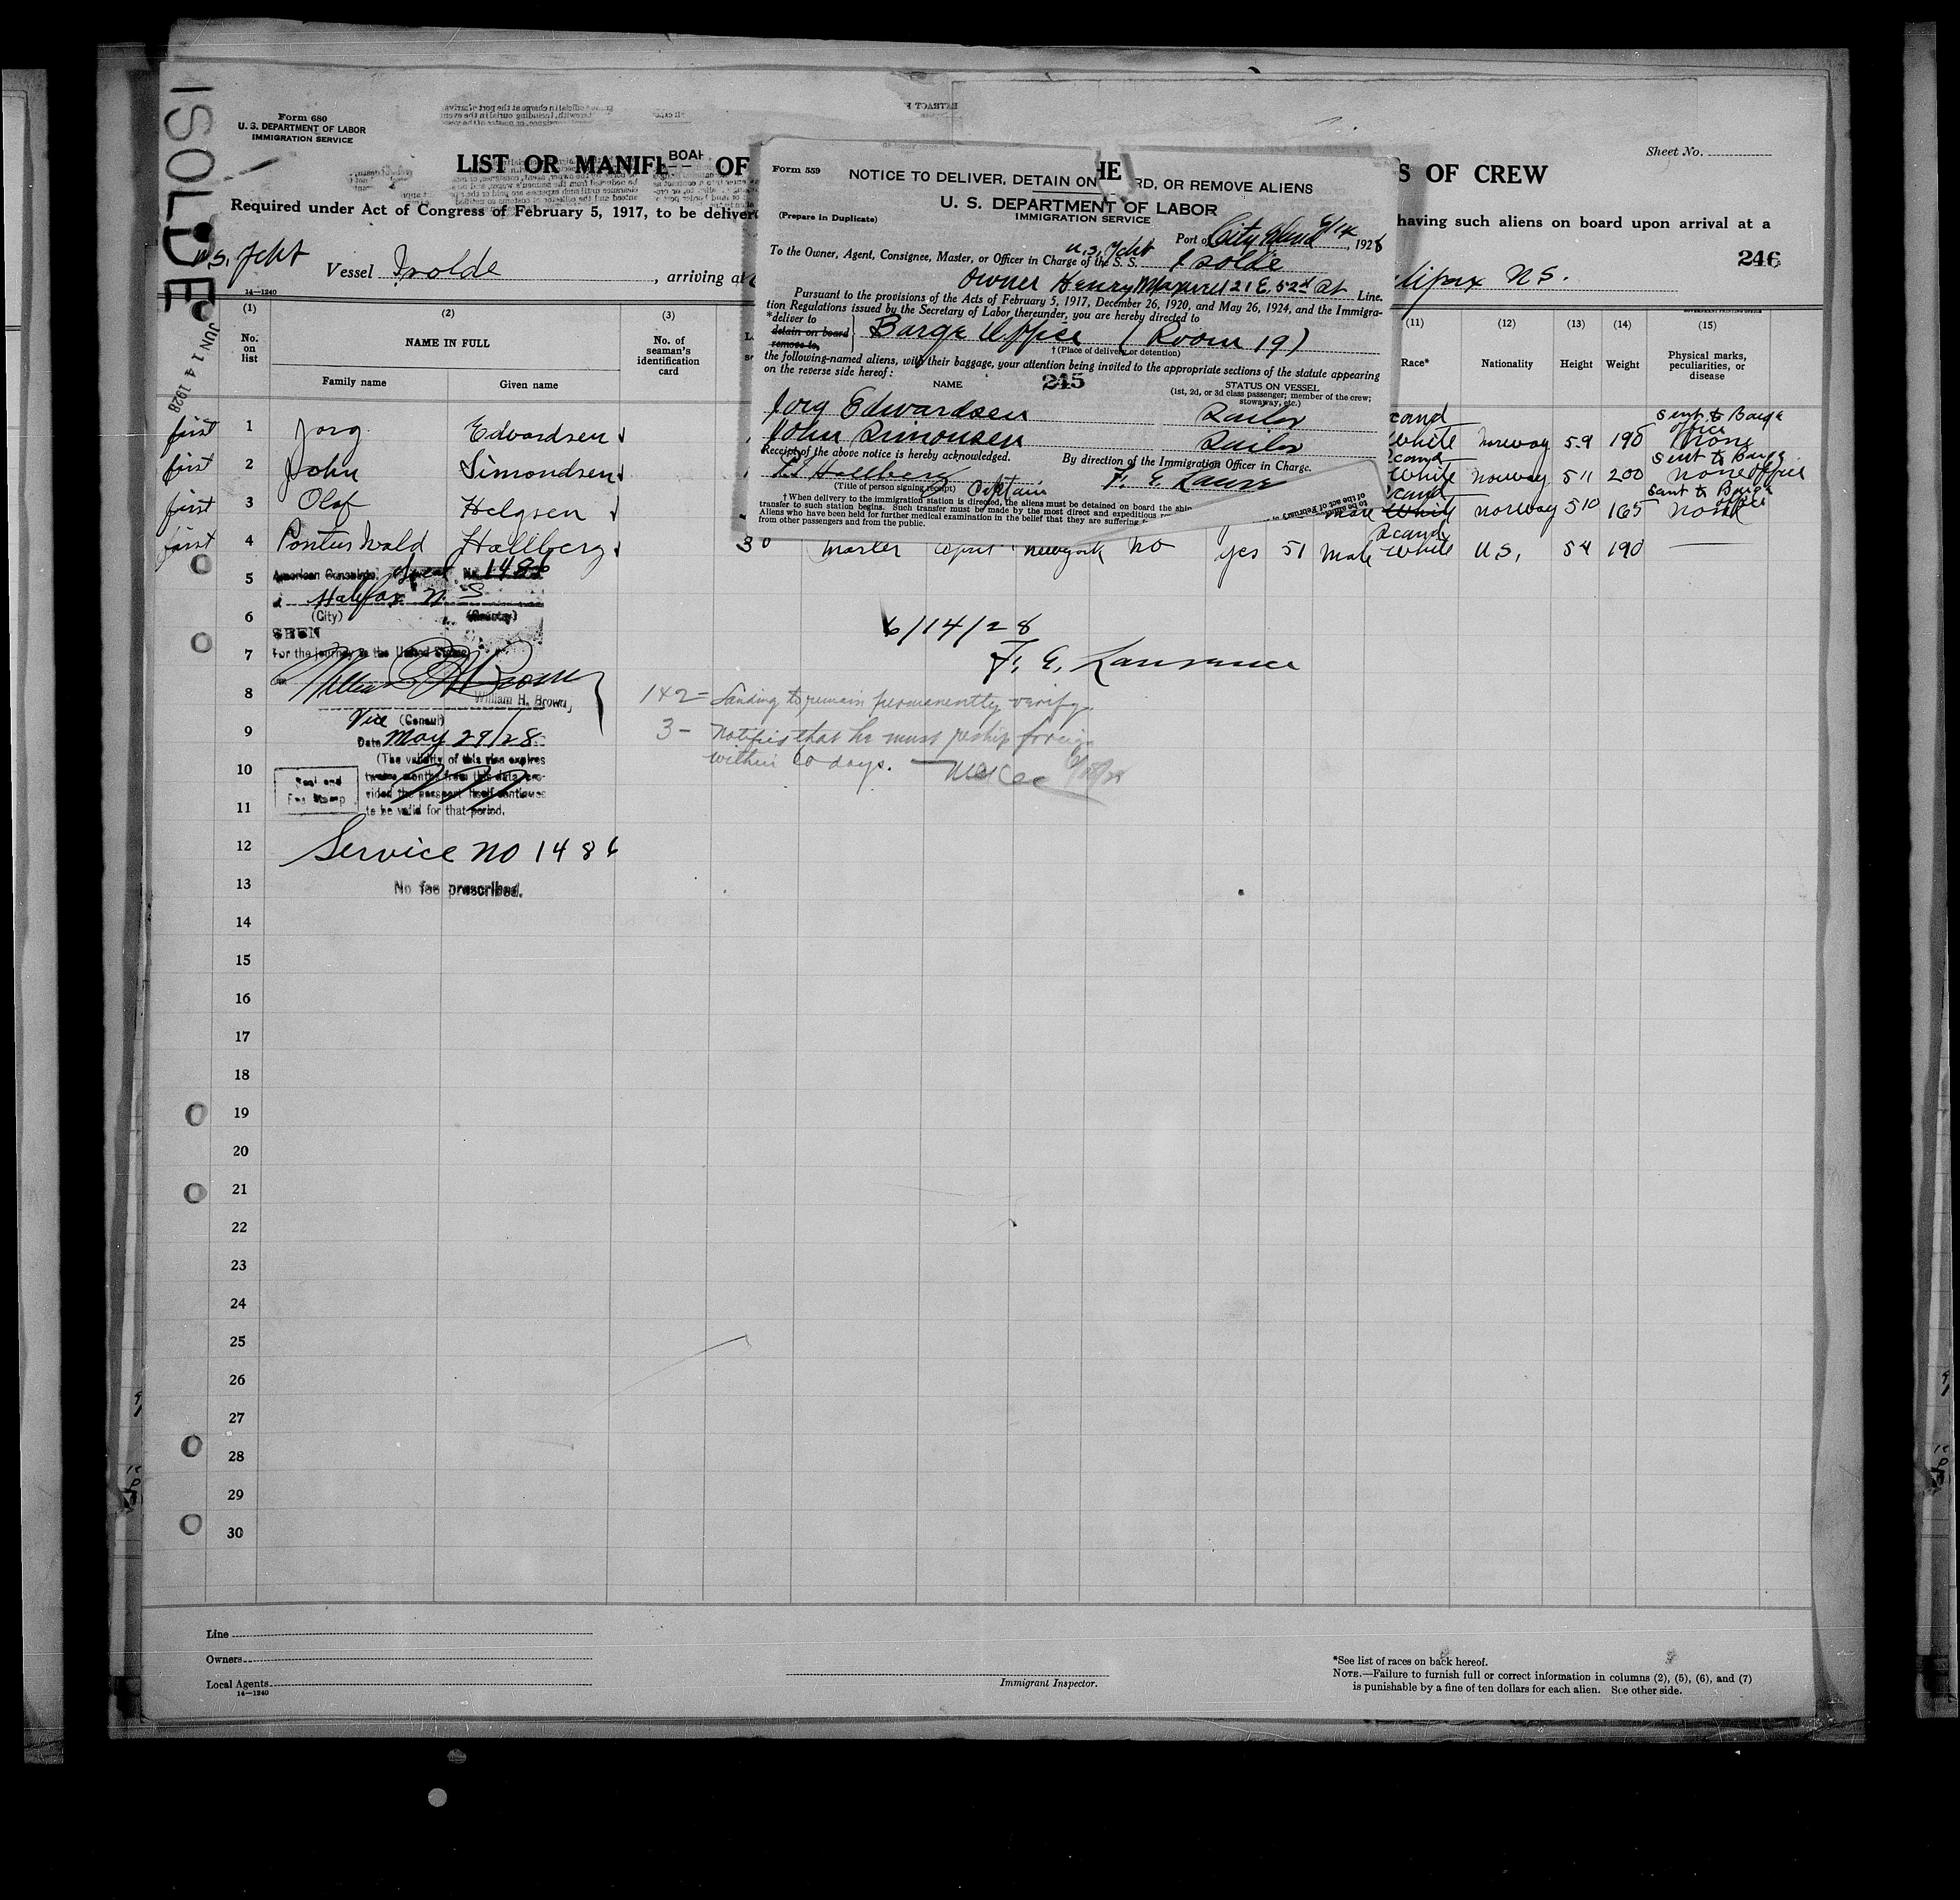 ISOLDE
JUN 14 1928
Form 680
U. S. DEPARTMENT OF LABOR
IMMIGRATION SERVICE
Sheet No.
LIST OR MANIF
BOAR
OF
HE
S OF CREW
Required under Act of Congress of February 5, 1917, to be deliver
having such aliens on board upon arrival at a
U.S. Ycht Vessel Isolde, arriving at
lifax N.S.
246
14—1240
Form 559
NOTICE TO DELIVER, DETAIN ON
RD, OR REMOVE ALIENS
U. S. DEPARTMENT OF LABOR
IMMIGRATION SERVICE
(Prepare in Duplicate)
Port of City Island 6/14, 1928
To the Owner, Agent, Consignee, Master, or Officer in Charge of the S. S. U.S. Ycht Isolde
Owner Henry Maxwell 21 E. 52d St Line.
Pursuant to the provisions of the Acts of February 5, 1917, December 26, 1920, and May 26, 1924, and the Immigra-
tion Regulations issued by the Secretary of Labor thereunder, you are hereby directed to
*deliver to
detain on board
remove to,
Barge Office (Room 19)
†(Place of delivery or detention)
the following-named aliens, with their baggage, your attention being invited to the appropriate sections of the statute appearing
on the reverse side hereof:
NAME
245
STATUS ON VESSEL
(1st, 2d, or 3d class passenger; member of the crew;
stowaway, etc.)
Jorg Edwardsen Sailor
John Simonsen Sailor
Receipt of the above notice is hereby acknowledged.
By direction of the Immigration Officer in Charge.
Hallberg Captain
(Title of person signing receipt)
F. E. Lawr
†When delivery to the immigration station is directed, the aliens must be detained on board the ship
transfer to such station begins. Such transfer must be made by the most direct and expeditious
Aliens who have been held for further medical examination in the belief that they are suffering
from other passengers and from the public.
(1) (2) (3) (11) (12) (13) (14) (15)
No. on list
NAME IN FULL
Family name
Given name
No. of seaman's identification card
Race*
Nationality
Height
Weight
Physical marks, peculiarities, or disease
first 1 Jorg Edvardsen Scand White Norway 5-9 190 Sent to Barge office none
first 2 John Simondsen Scand White Norway 5-11 200 Sent to Barge office none
first 3 Olaf Helgsen Male Scand White Norway 5 10 165 Sent to Barge office none
first 4 Pontus Wald Hallberg 30 Master April New York No yes 51 Male Scand White U.S. 5 4 190
5
6
7
8
9
10
11
12
13
14
15
16
17
18
19
20
21
22
23
24
25
26
27
28
29
30
American Consulate No. 1486
Halifax N.S.
(City) (Country)
SEEN
For the journey to the United States
William H. Brown
William H. Brown,
Vice (Consul)
Date May 29/28
(The validity of this visa expires
twelve months from this date pro-
vided the passport itself continues
to be valid for that period.
Seal and
Fee Stamp
Service No 1486
No fee prescribed.
6/14/28
F. E. Lawrence
1 & 2 = Landing to remain permanently verify.
3 - Notified that he must reship foreign
within 60 days.
Line
Owners
Local Agents
14—1240
Immigrant Inspector.
*See list of races on back hereof.
NOTE.—Failure to furnish full or correct information in columns (2), (5), (6), and (7)
is punishable by a fine of ten dollars for each alien. See other side.